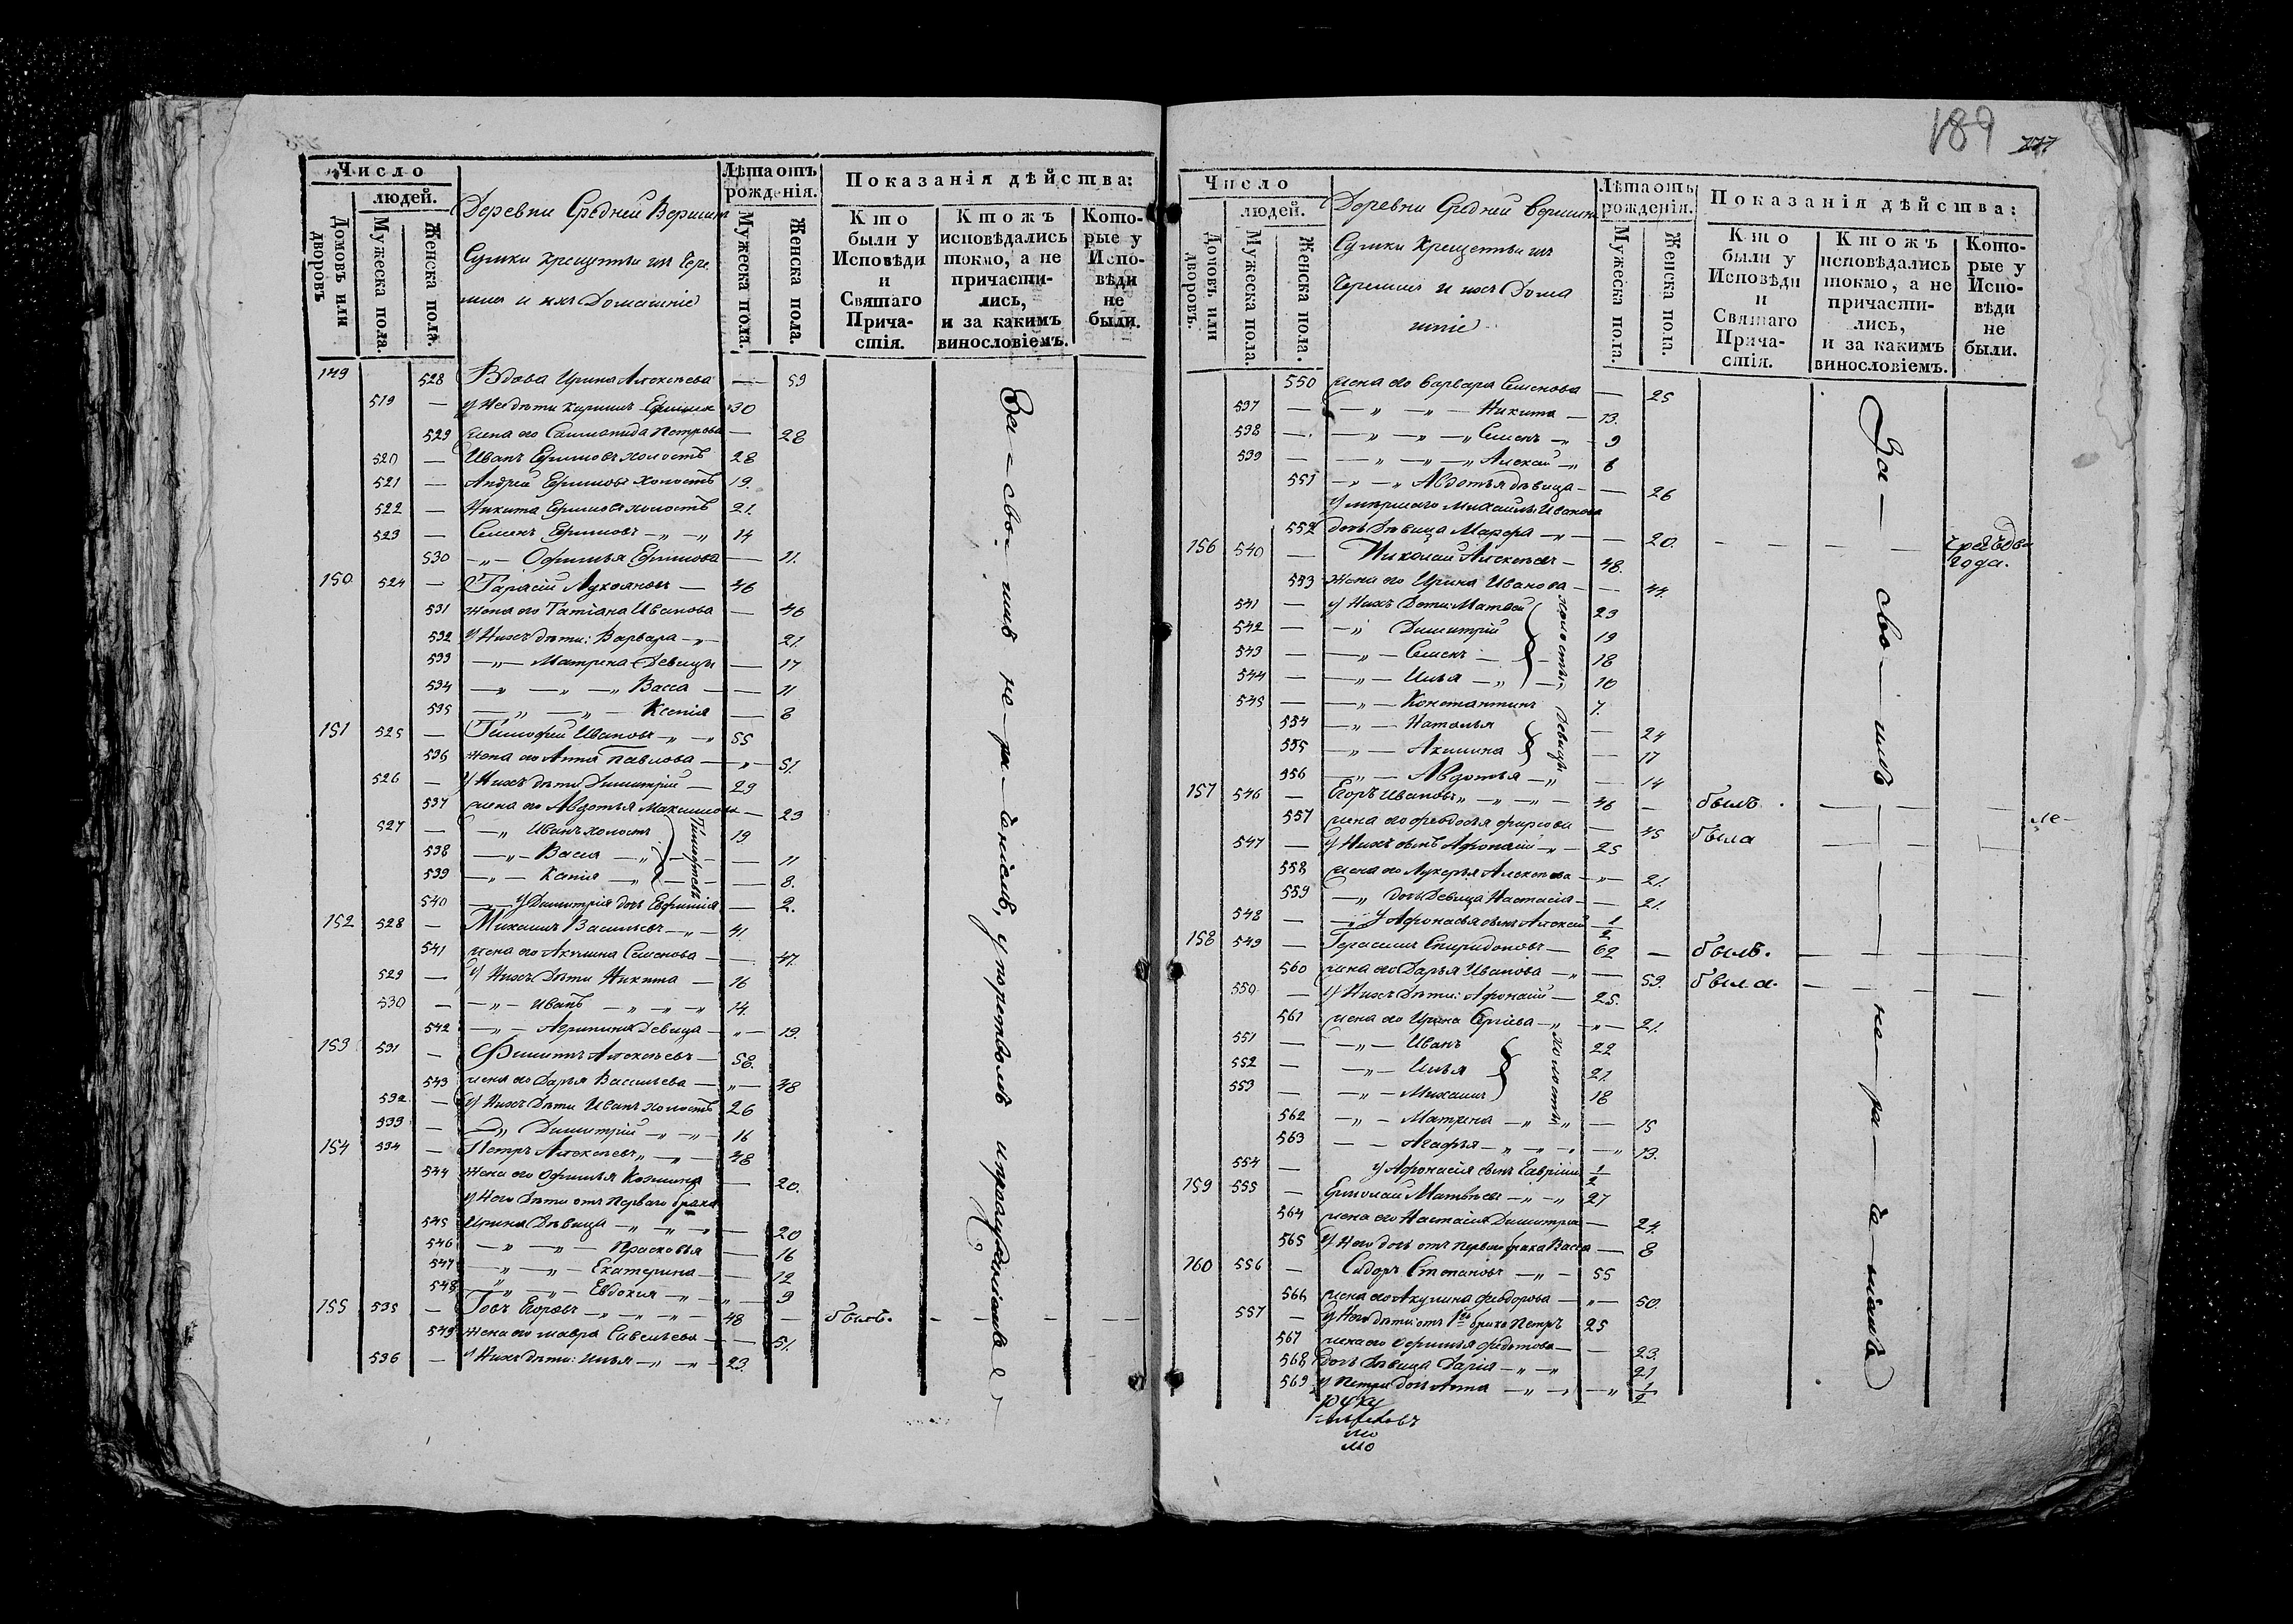 Число
людей.
Домовъ или дворовъ
Мужеска пола.
Женска пола.
Деревни Средней
Сушки крещеныи изъ Чере
мисъ и ихъ Домашніе
Лѣта отъ рожденія.
Мужеска пола.
Женска пола.
Показанія дѣйства:
Кто были у Исповѣди и Святаго Причастія.
Ктожъ исповѣдались токмо, а не причастились, и за какимъ винословіемъ.
Которые у Исповѣди не были.
149 528 Вдова Ирина Алексѣева — 59
519 — у Нея дѣти Кирилъ 30
529 жена его Соломонида Петрова — 28
520 — Иванъ Ефимовъ холостъ 28
521 — Андрей Ефимовъ холостъ 19.
522 — Никита Ефимовъ холостъ 21.
523 — Семенъ Ефимовъ 14
530 Офимья Ефимова — 11.
150 524 — Гарасій Лукояновъ — 46
531 жена его Татіана Иванова — 46
532 у Нихъ дѣти: Варвара 21.
533 Матрена Девицы — 17
534 Васса — 11
535 Ксенія — 8
151 525 — Тимофей Ивановъ 55
536 жена его Анна Павлова — 51.
526 — у Нихъ дѣти Димитрій — 29
537 жена его Авдотья Максимова — 23
527 — Иванъ холостъ 19
538 Васса — 11
539 Ксенія — 8.
Тимофеевы
540 у Димитрія дочь Евфимія — 2.
152 528 — Михаилъ Васильевъ 41.
541 жена его Акулина Семенова — 47.
529 — у Нихъ Дѣти Никита — 16
530 — Иванъ 14.
542 Агрипина Девица 19.
153 531 — Филипъ Алексѣевъ — 58.
543 жена его Дарья Васильева — 48
532 — у Нихъ Дѣти Иванъ холостъ 26
533 — Димитрій 16
154 534 — Петръ Алексѣевъ 48
544 жена его Офимья Козмина — 20.
у Него Дѣти отъ перваго брака
545 Ирина Дѣвица — 20
546 Прасковья — 16
547 Екатерина — 12
548 Евдокия 9
155 535 — Іовъ Егоровъ 48 — былъ.
549 жена его Мавра Савельева — 51.
536 — у Нихъ дѣти: Илья 23.
За — сво — имъ не — ра — дѣніемъ,
189
777
Число
людей.
Домовъ или дворовъ.
Мужеска пола.
Женска пола.
Деревни Средней
Сушки Крещеныи изъ
Черемисъ и ихъ Дома
шніе
Лѣта отъ рожденія.
Мужеска пола.
Женска пола.
Показанія дѣйства:
Кто были у Исповѣди и Святаго Причастія.
Ктожъ исповѣдались токмо, а не причастились, и за какимъ винословіемъ.
Которые у Исповѣди не были.
550 жена его Варвара Семенова — 25
537 — Никита — 13.
538 — Семенъ 9
539 — Алексѣй 6
551 Авдотья дѣвица — 26
Умершаго Михаила Иванова
552 дочь Дѣвица Марфа 20.
156 540 — Николай Алексѣевъ — 48.
года.
553 жена его Ирина Иванова — 44.
541 — у Нихъ Дети: Матвей 23
542 — Димитрій 19
543 — Семенъ 18
544 — Илья 10
холосты
545 — Константинъ 7.
554 Наталья — 24
555 Акилина — 17
556 Авдотья — 14
Девицы
157 546 — Егоръ Ивановъ 46 — былъ.
557 жена его Феодосья Фирсова — 45 была
547 — у Нихъ сынъ Афонасій 25
558 жена его Лукерья Алексѣева 21.
559 дочь Девица Настасія — 21.
548 — у Афонасья сынъ Алексѣй 1/2
158 549 — Герасимъ Спиридоновъ — 62 — былъ.
560 жена его Дарья Иванова — 59. была.
550 — у Нихъ Дѣти: Афонасій — 25.
561 жена его Ирина Сергіева 21.
551 — Иванъ 22
552 — Илья 21.
553 — Михаилъ 18
холосты
562 Матрена — 15
563 Агафья 13.
554 — у Афонасія сынъ Гаврілъ 1/2
159 555 — Ермолай Матвѣевъ 27
564 жена его Настасія Димитрева — 24.
565 у Него дочь отъ перваго брака Васса — 8
160 556 — Сидоръ Степановъ 55
566 жена его Акулина Феодорова 50.
557 — у Него дѣти отъ 1го брака Петръ 25
567 жена его Офимья Федотова — 23.
568 дочь Дѣвица Дарія 21
569 у Петра дочь Анна 1/2
За — сво — имъ — не — ра — дѣ — ніемъ